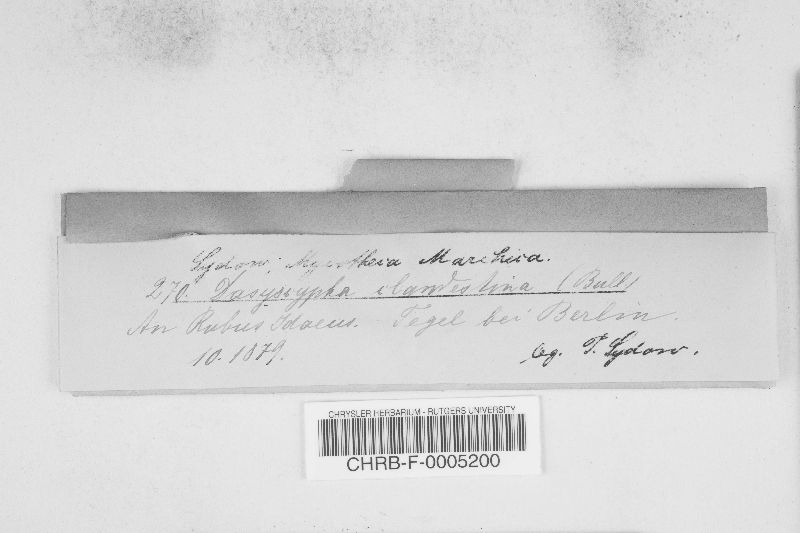 Sydow, Mycotheca Marchica.
270. Dasyscypha clandestina (Bull)
An Rubus Idaeus. Tegel bei Berlin.
10.1879. leg. P. Sydow.
CHRYSLER HERBARIUM - RUTGERS UNIVERSITY
CHRB-F-0005200